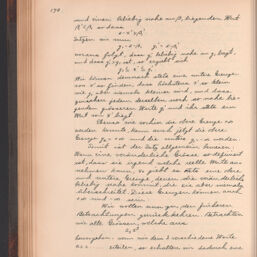 190
und einen beliebig nahe an β, liegenden Wert
setzen wir nun
woraus folgt, dass g' beliebig nahe an g, liegt,
und dass g' > g, ist, so ergibt sich
Wir können demnach stets eine untere Grenze
von x so finden, dass höchstens x so klein
wie g, aber niemals kleiner wird, und dass
zwischen jedem derselben noch so nahe lie-
genden grösseren Werte g' und ihr stets ein
Wert von x liegt.
Ebenso wie vorhin die obere Grenze +∞
werden konnte, kann auch jetzt die obere
Grenze g₂ = +∞ und die untere g₁ = -∞ werden
Somit ist der Satz allgemein bewiesen
Wenn eine veränderliche Grösse so definiert
ist, dass sie irgend welche reelle Werte an-
nehmen kann, so giebt es stets eine obere
und untere Grenze, denen die veränderliche
beliebig nahe kommt, die sie aber niemals
überschreitet. Diese Grenzen können auch
+∞ und -∞ sein.
Wir wollen nun zu den früheren
Betrachtungen zurückkehren. Betrachten
wir alle Grössen, welche aus
hervorgehen, wenn wir dem x verschiedene Werte
erteilen, so erhalten wir dadurch eine